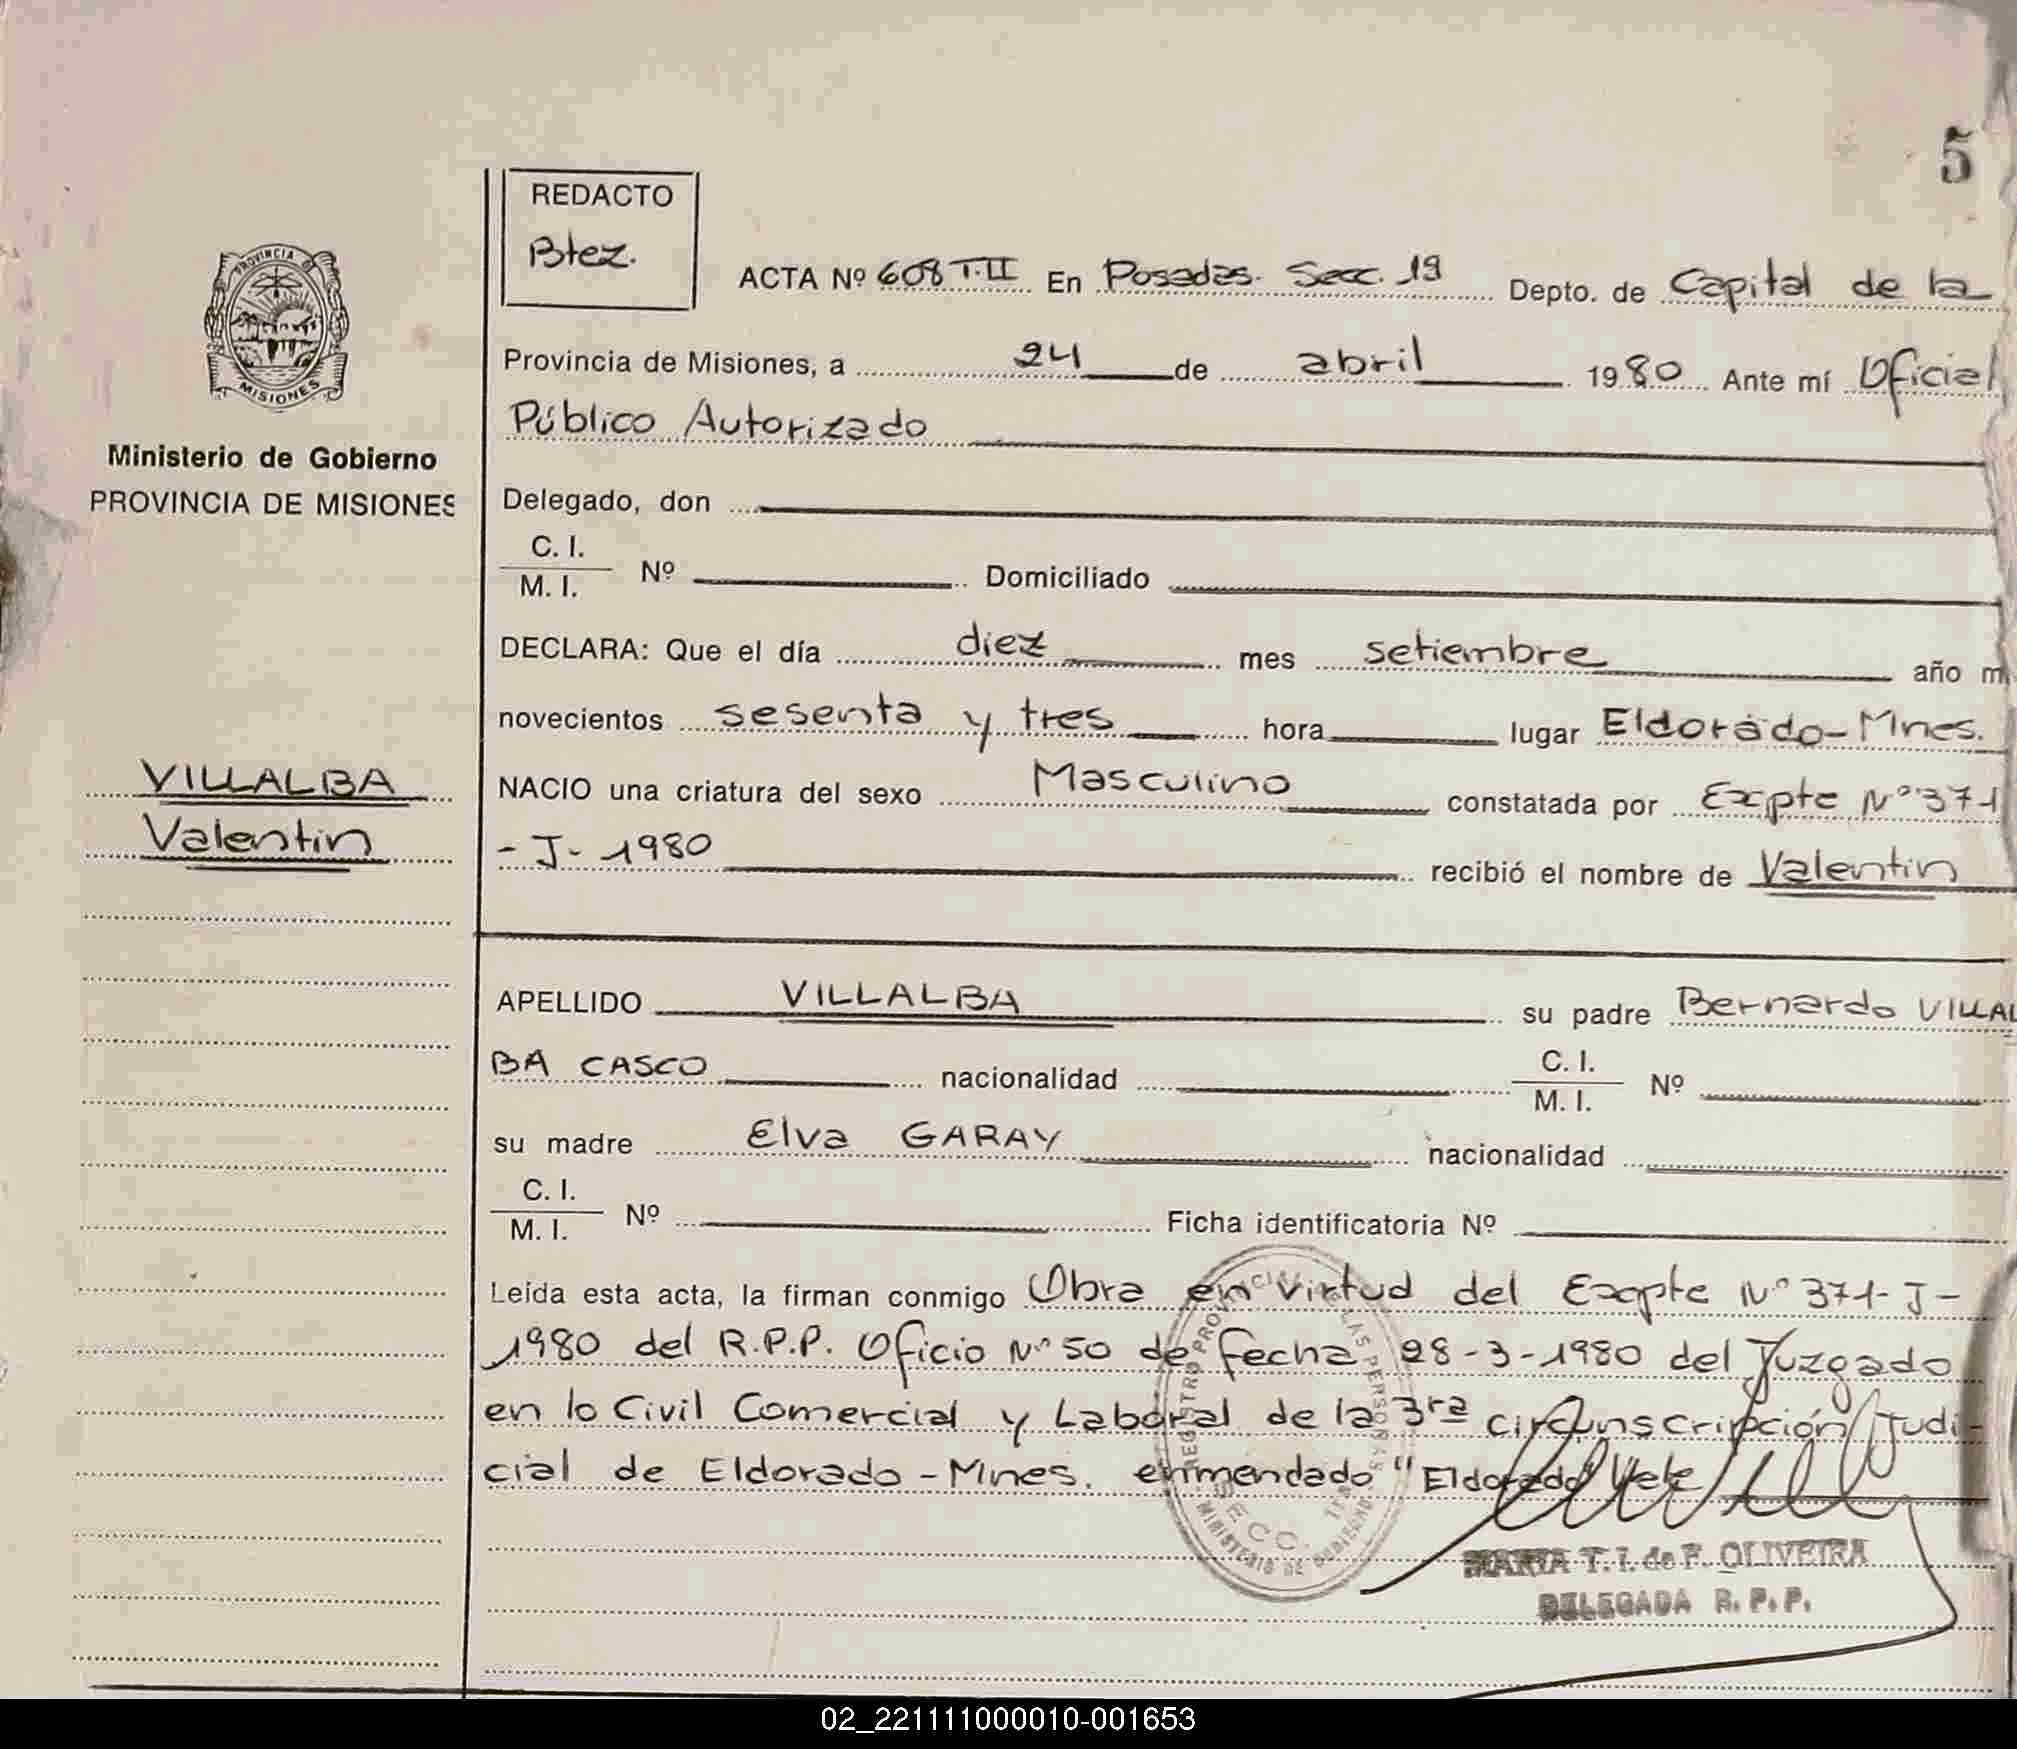 5
REDACTO
Btez.
ACTA Nº 608 T.II En Posadas. Secc. 1ª Depto. de Capital de la
Provincia de Misiones, a 24 de abril 1980 Ante mí Oficial
Público Autorizado
PROVINCIA DE MISIONES
Ministerio de Gobierno
PROVINCIA DE MISIONES
Delegado, don
C. I.
M. I. Nº Domiciliado
DECLARA: Que el día diez mes setiembre año m
novecientos sesenta y tres hora lugar Eldorado-Mnes.
VILLALBA
Valentin
NACIO una criatura del sexo Masculino constatada por Expte Nº 371
-J-1980 recibió el nombre de Valentin
APELLIDO VILLALBA su padre Bernardo VILLAL
BA CASCO nacionalidad C. I.
M. I. Nº
su madre Elva GARAY nacionalidad
C. I.
M. I. Nº Ficha identificatoria Nº
Leída esta acta, la firman conmigo Obra en virtud del Expte Nº 371-J-
1980 del R.P.P. Oficio Nº 50 de fecha 28-3-1980 del Juzgado
en lo Civil Comercial y Laboral de la 3ra circunscripción Judi-
cial de Eldorado-Mnes. enmendado "Eldorado" Vale
REGISTRO PROVINCIAL DE LAS PERSONAS
SECC. 1ra
MINISTERIO DE GOBIERNO
MARIA T. I. de F. OLIVEIRA
DELEGADA R. P. P.
02_221111000010-001653